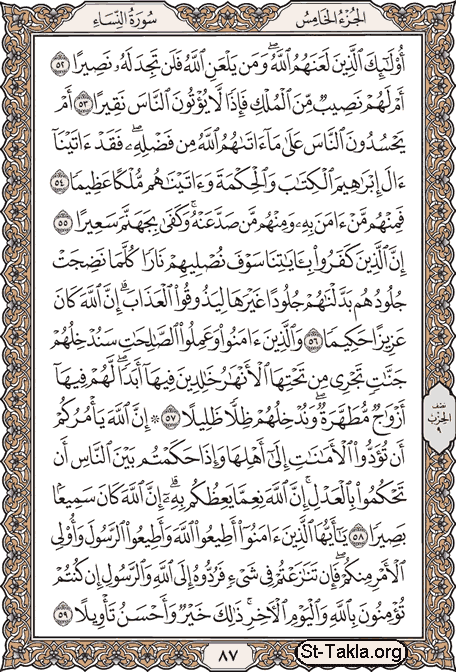 الجُزْءُ الخَامِسُ
سُورَةُ النِّسَاءِ
أُوْلَٰٓئِكَ ٱلَّذِينَ لَعَنَهُمُ ٱللَّهُۖ وَمَن يَلْعَنِ ٱللَّهُ فَلَن تَجِدَ لَهُۥ نَصِيرًا ٥٢
أَمْ لَهُمْ نَصِيبٌ مِّنَ ٱلْمُلْكِ فَإِذًا لَّا يُؤْتُونَ ٱلنَّاسَ نَقِيرًا ٥٣ أَمْ
يَحْسُدُونَ ٱلنَّاسَ عَلَىٰ مَآ ءَاتَىٰهُمُ ٱللَّهُ مِن فَضْلِهِۦۖ فَقَدْ ءَاتَيْنَآ
ءَالَ إِبْرَٰهِيمَ ٱلْكِتَٰبَ وَٱلْحِكْمَةَ وَءَاتَيْنَٰهُم مُّلْكًا عَظِيمًا ٥٤
فَمِنْهُم مَّنْ ءَامَنَ بِهِۦ وَمِنْهُم مَّن صَدَّ عَنْهُۚ وَكَفَىٰ بِجَهَنَّمَ سَعِيرًا ٥٥
إِنَّ ٱلَّذِينَ كَفَرُواْ بِـَٔايَٰتِنَا سَوْفَ نُصْلِيهِمْ نَارًا كُلَّمَا نَضِجَتْ
جُلُودُهُم بَدَّلْنَٰهُمْ جُلُودًا غَيْرَهَا لِيَذُوقُواْ ٱلْعَذَابَۗ إِنَّ ٱللَّهَ كَانَ
عَزِيزًا حَكِيمًا ٥٦ وَٱلَّذِينَ ءَامَنُواْ وَعَمِلُواْ ٱلصَّٰلِحَٰتِ سَنُدْخِلُهُمْ
جَنَّٰتٍ تَجْرِي مِن تَحْتِهَا ٱلْأَنْهَٰرُ خَٰلِدِينَ فِيهَآ أَبَدًاۖ لَّهُمْ فِيهَآ
أَزْوَٰجٌ مُّطَهَّرَةٌۖ وَنُدْخِلُهُمْ ظِلًّا ظَلِيلًا ٥٧ ۞ إِنَّ ٱللَّهَ يَأْمُرُكُمْ
أَن تُؤَدُّواْ ٱلْأَمَٰنَٰتِ إِلَىٰٓ أَهْلِهَا وَإِذَا حَكَمْتُم بَيْنَ ٱلنَّاسِ أَن
تَحْكُمُواْ بِٱلْعَدْلِۚ إِنَّ ٱللَّهَ نِعِمَّا يَعِظُكُم بِهِۦٓۗ إِنَّ ٱللَّهَ كَانَ سَمِيعًۢا
بَصِيرًا ٥٨ يَٰٓأَيُّهَا ٱلَّذِينَ ءَامَنُوٓاْ أَطِيعُواْ ٱللَّهَ وَأَطِيعُواْ ٱلرَّسُولَ وَأُوْلِي
ٱلْأَمْرِ مِنكُمْۖ فَإِن تَنَٰزَعْتُمْ فِي شَيْءٍ فَرُدُّوهُ إِلَى ٱللَّهِ وَٱلرَّسُولِ إِن كُنتُمْ
تُؤْمِنُونَ بِٱللَّهِ وَٱلْيَوْمِ ٱلْأَخِرِۚ ذَٰلِكَ خَيْرٌ وَأَحْسَنُ تَأْوِيلًا ٥٩
نصف
الحزب
٩
٨٧
St-Takla.org